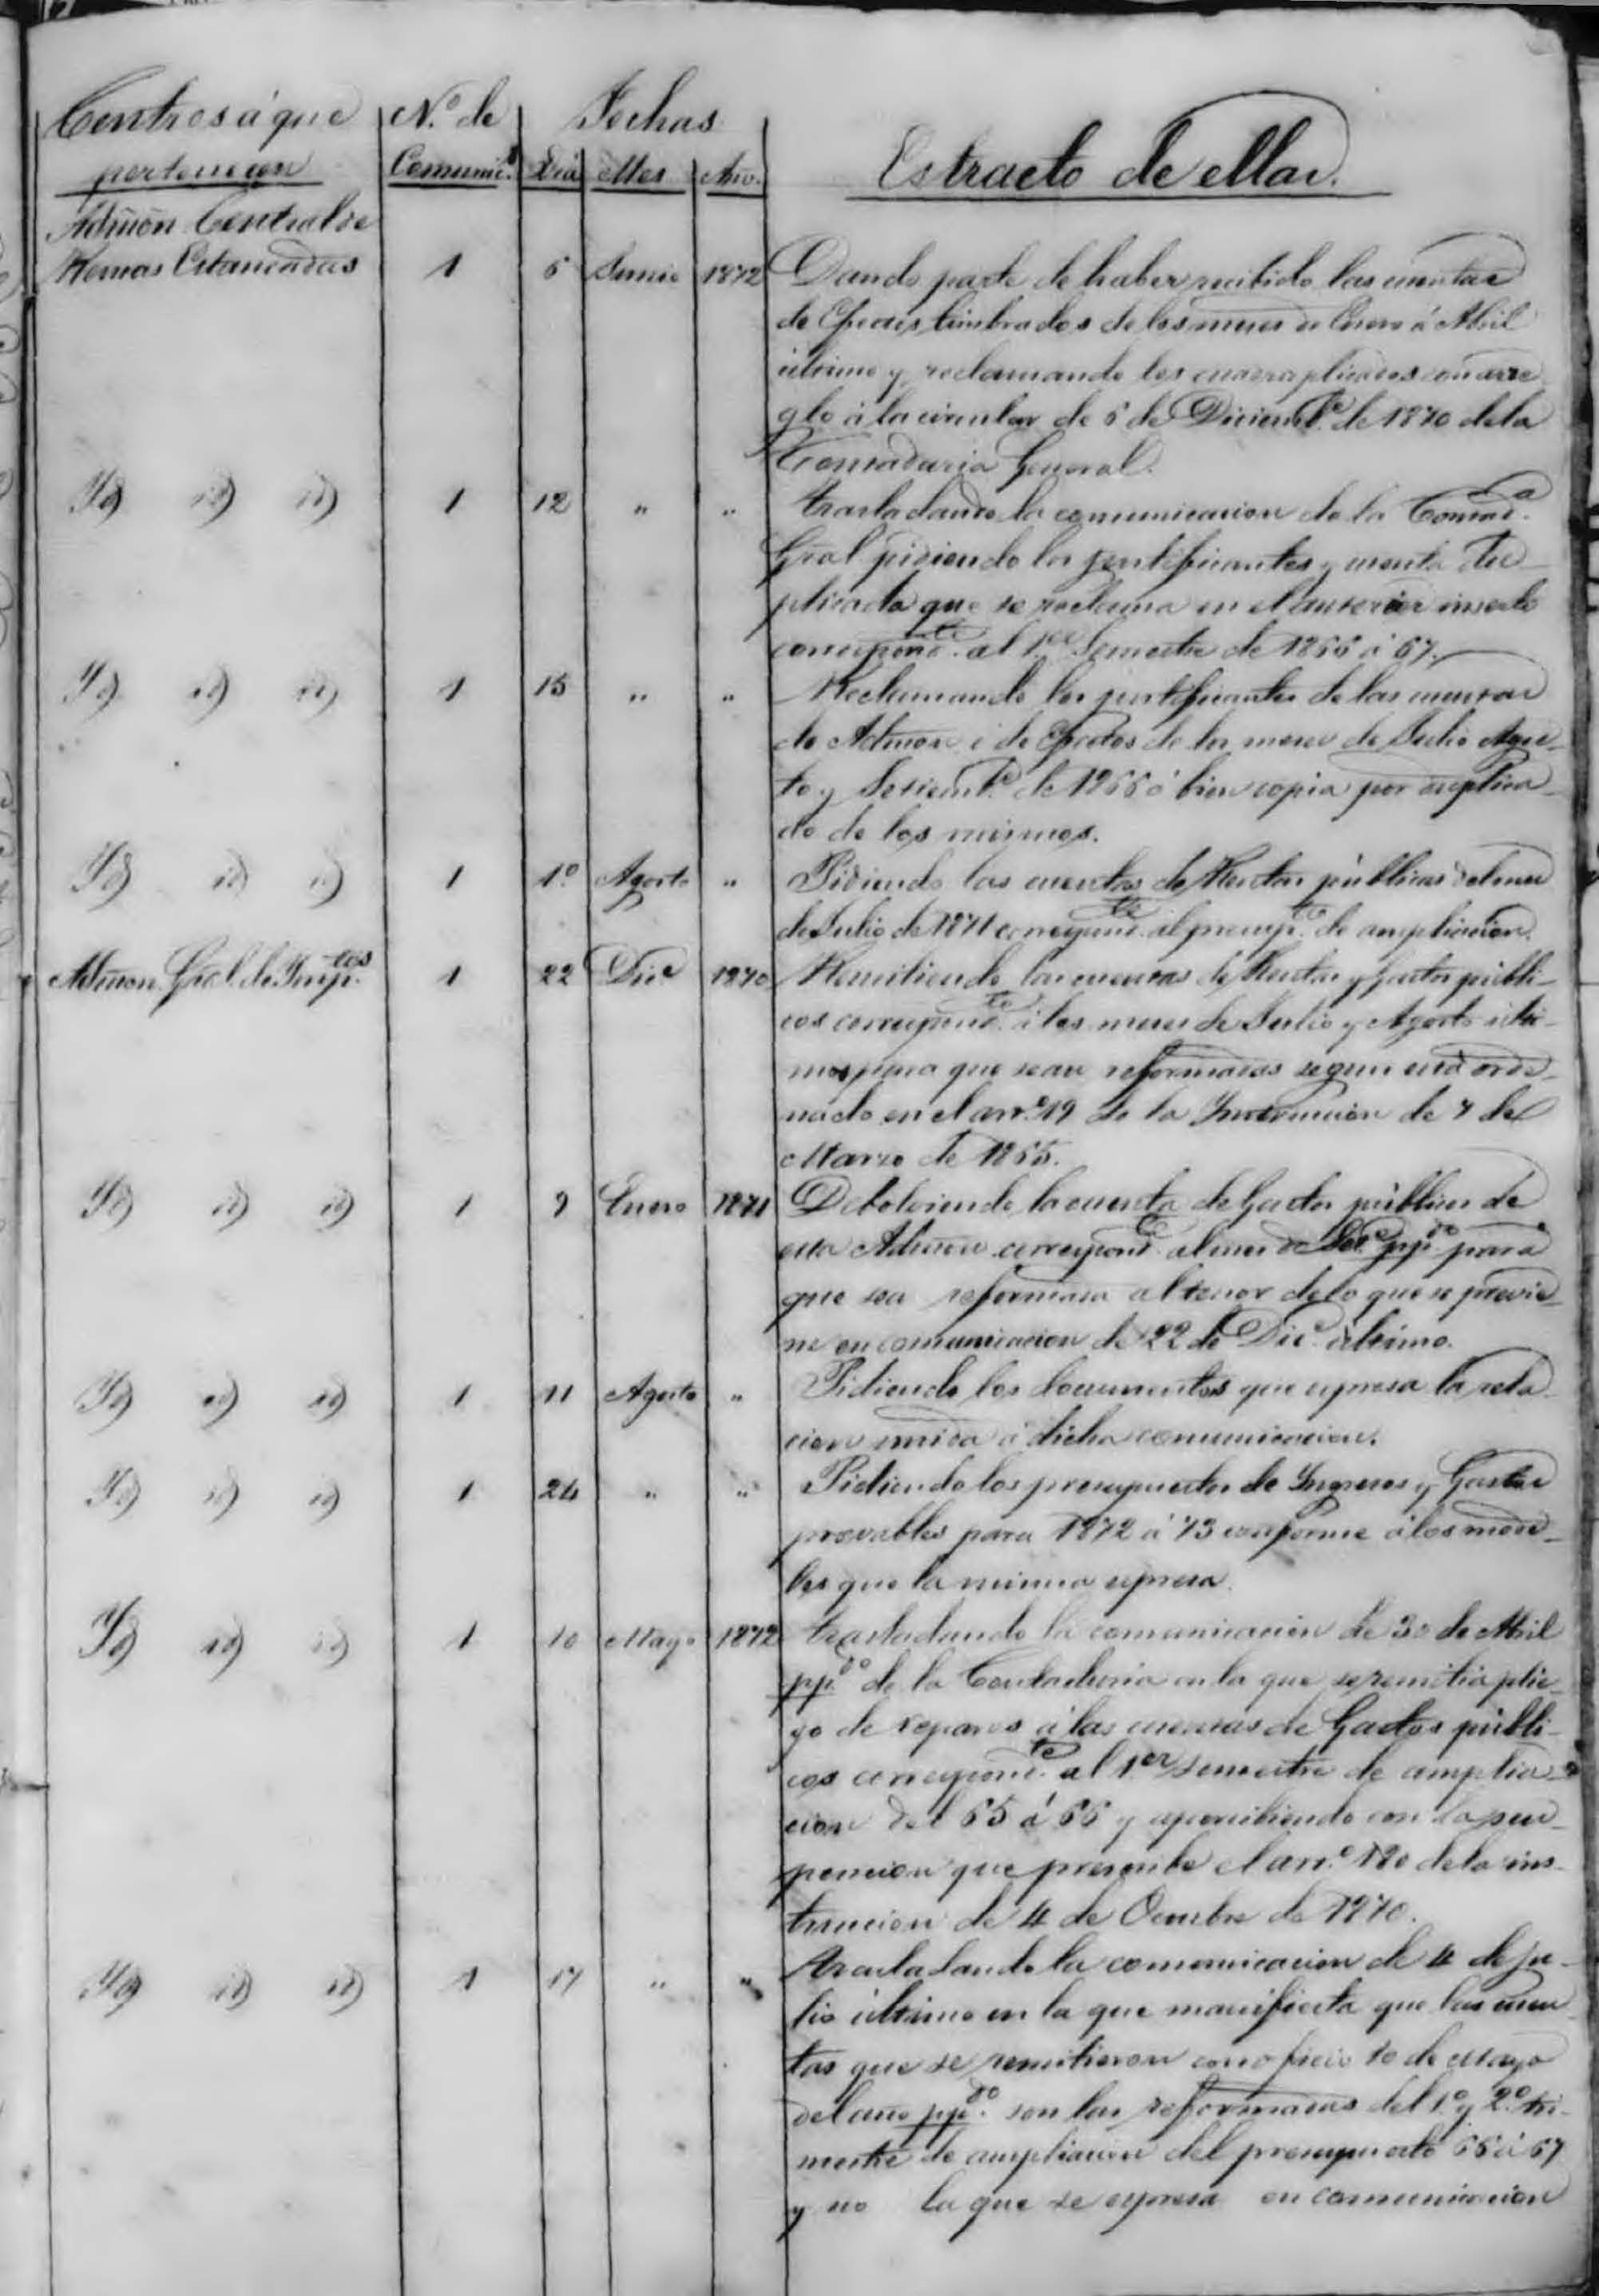 Centros á que | N.º de | Fechas
pertenecen | Comunic.s | Dia | Mes | Año. | Estracto de ellas.
Admon Central de
Rentas Estancadas | 1 | 6 | Junio | 1872 | Dando parte de haber recibido las cuentas
de Efectos timbrados de los meses de Enero á Abril
último y reclamando los cuadruplicados con arre
glo á la circular de 6 de Diciemb.e de 1870 de la
Contaduria General.
Id id id | 1 | 12 | " | " | Trasladando la comunicacion de la Contad.a
Gral pidiendo los justificantes y cuenta du-
plicada que se reclama en el anterior inserto
correspond.te al 1.er Semestre de 1866 á 67.
Id id id | 1 | 15 | " | " | Reclamando los justificantes de las cuentas
de Admon é de Efectos de los meses de Julio Agos-
to y Setiemb.e de 1866 ó bien copia por duplica-
do de los mismos.
Id id id | 1 | 1.º | Agosto | " | Pidiendo las cuentas de Rentas públicas del mes
de Julio de 1871 correspond.te al presup.to de ampliacion.
Admon Gral. de Imp.tos | 1 | 22 | Dic.e | 1870 | Remitiendo las cuentas de Rentas y Gastos públi-
cos correspond.te á los meses de Julio y Agosto últi-
mos para que sean reformadas segun está orde-
nado en el art.º 19 de la Instruccion de 7 de
Marzo de 1865.
Id id id | 1 | 9 | Enero | 1871 | Debolviendo la cuenta de Gastos públicos de
esta Admon correspond.te al mes de Set.e pp.do para
que sea reformada al tenor de lo que se previe-
ne en comunicacion de 22 de Dic.e último.
Id id id | 1 | 11 | Agosto | " | Pidiendo los documentos que espresa la rela-
cion unida á dicha comunicacion.
Id id id | 1 | 24 | " | " | Pidiendo los presupuestos de Ingresos y Gastos
provables para 1872 á 73 conforme á los mode-
los que la misma espresa.
Id id id | 1 | 10 | Mayo | 1872 | Trasladando la comunicacion de 30 de Abril
pp.do de la Contaduria en la que se remitia plie-
go de reparos á las cuentas de Gastos públi-
cos correspond.te al 1.er semestre de amplia-
cion del 65 á 66 y apercibiendo con la sus-
pension que prescribe el art.º 120 de la ins-
truccion de 4 de Octubre de 1870.
Id id id | 1 | 17 | " | " | Trasladando la comunicacion de 4 de Ju-
lio último en la que manifiesta que las cuen-
tas que se remitieron con oficio 10 de Mayo
del año pp.do son las reformadas del 1.º y 2.º tri-
mestre de ampliacion del presupuesto 66 á 67
y no la que se espresa en comunicacion